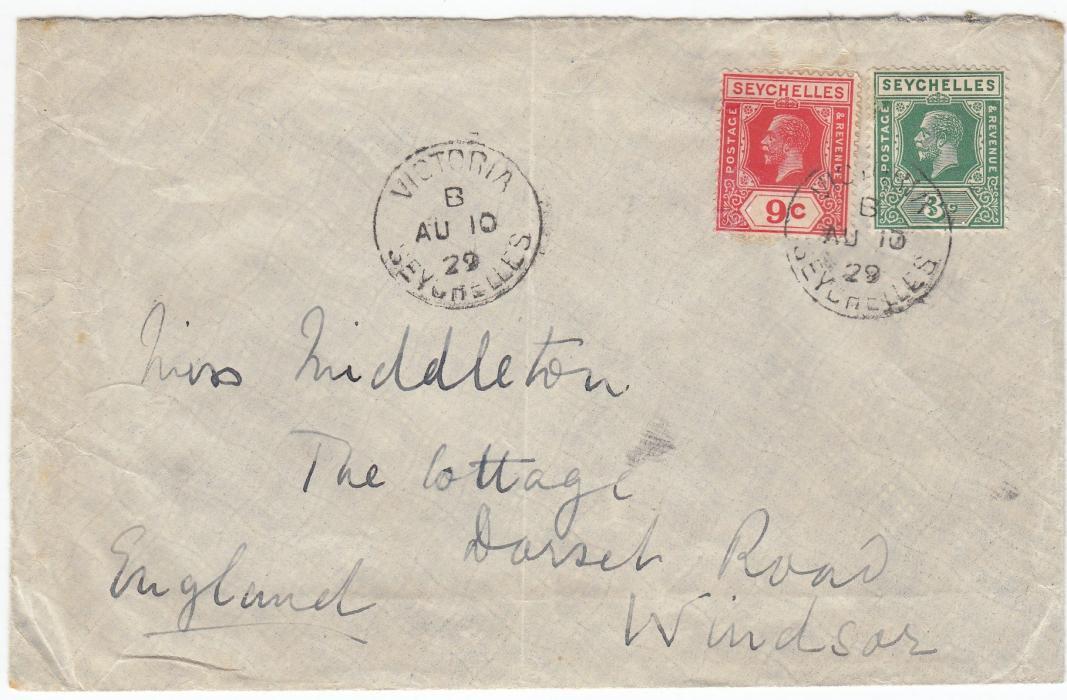 SEYCHELLES
POSTAGE
& REVENUE
9c
SEYCHELLES
POSTAGE
& REVENUE
3c
VICTORIA
B
AU 10
29
SEYCHELLES
VICTORIA
B
AU 10
29
SEYCHELLES
Miss Middleton
The Cottage
Dorset Road
Windsor
England